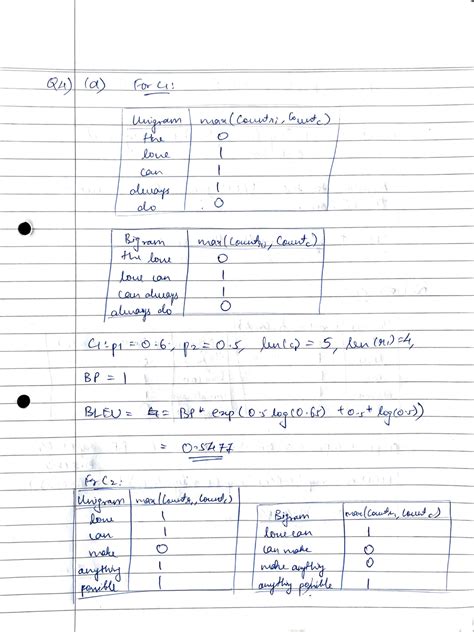 Q4) (a) For C1:
Unigram max(Countri, Countc)
the 0
love 1
can 1
always 1
do 0
Bigram max(Countri, Countc)
the love 0
love can 1
can always 1
always do 0
C1: p1 = 0.6, p2 = 0.5, len(c) = 5, len(ri) = 4,
BP = 1
BLEU = BP * exp(0.5 log(0.65) + 0.5 * log(0.5))
= 0.5477
For C2:
Unigram max(Countri, Countc)
love 1
can 1
make 0
anything 1
possible 1
Bigram max(Countri, Countc)
love can 1
can make 0
make anything 0
anything possible 1